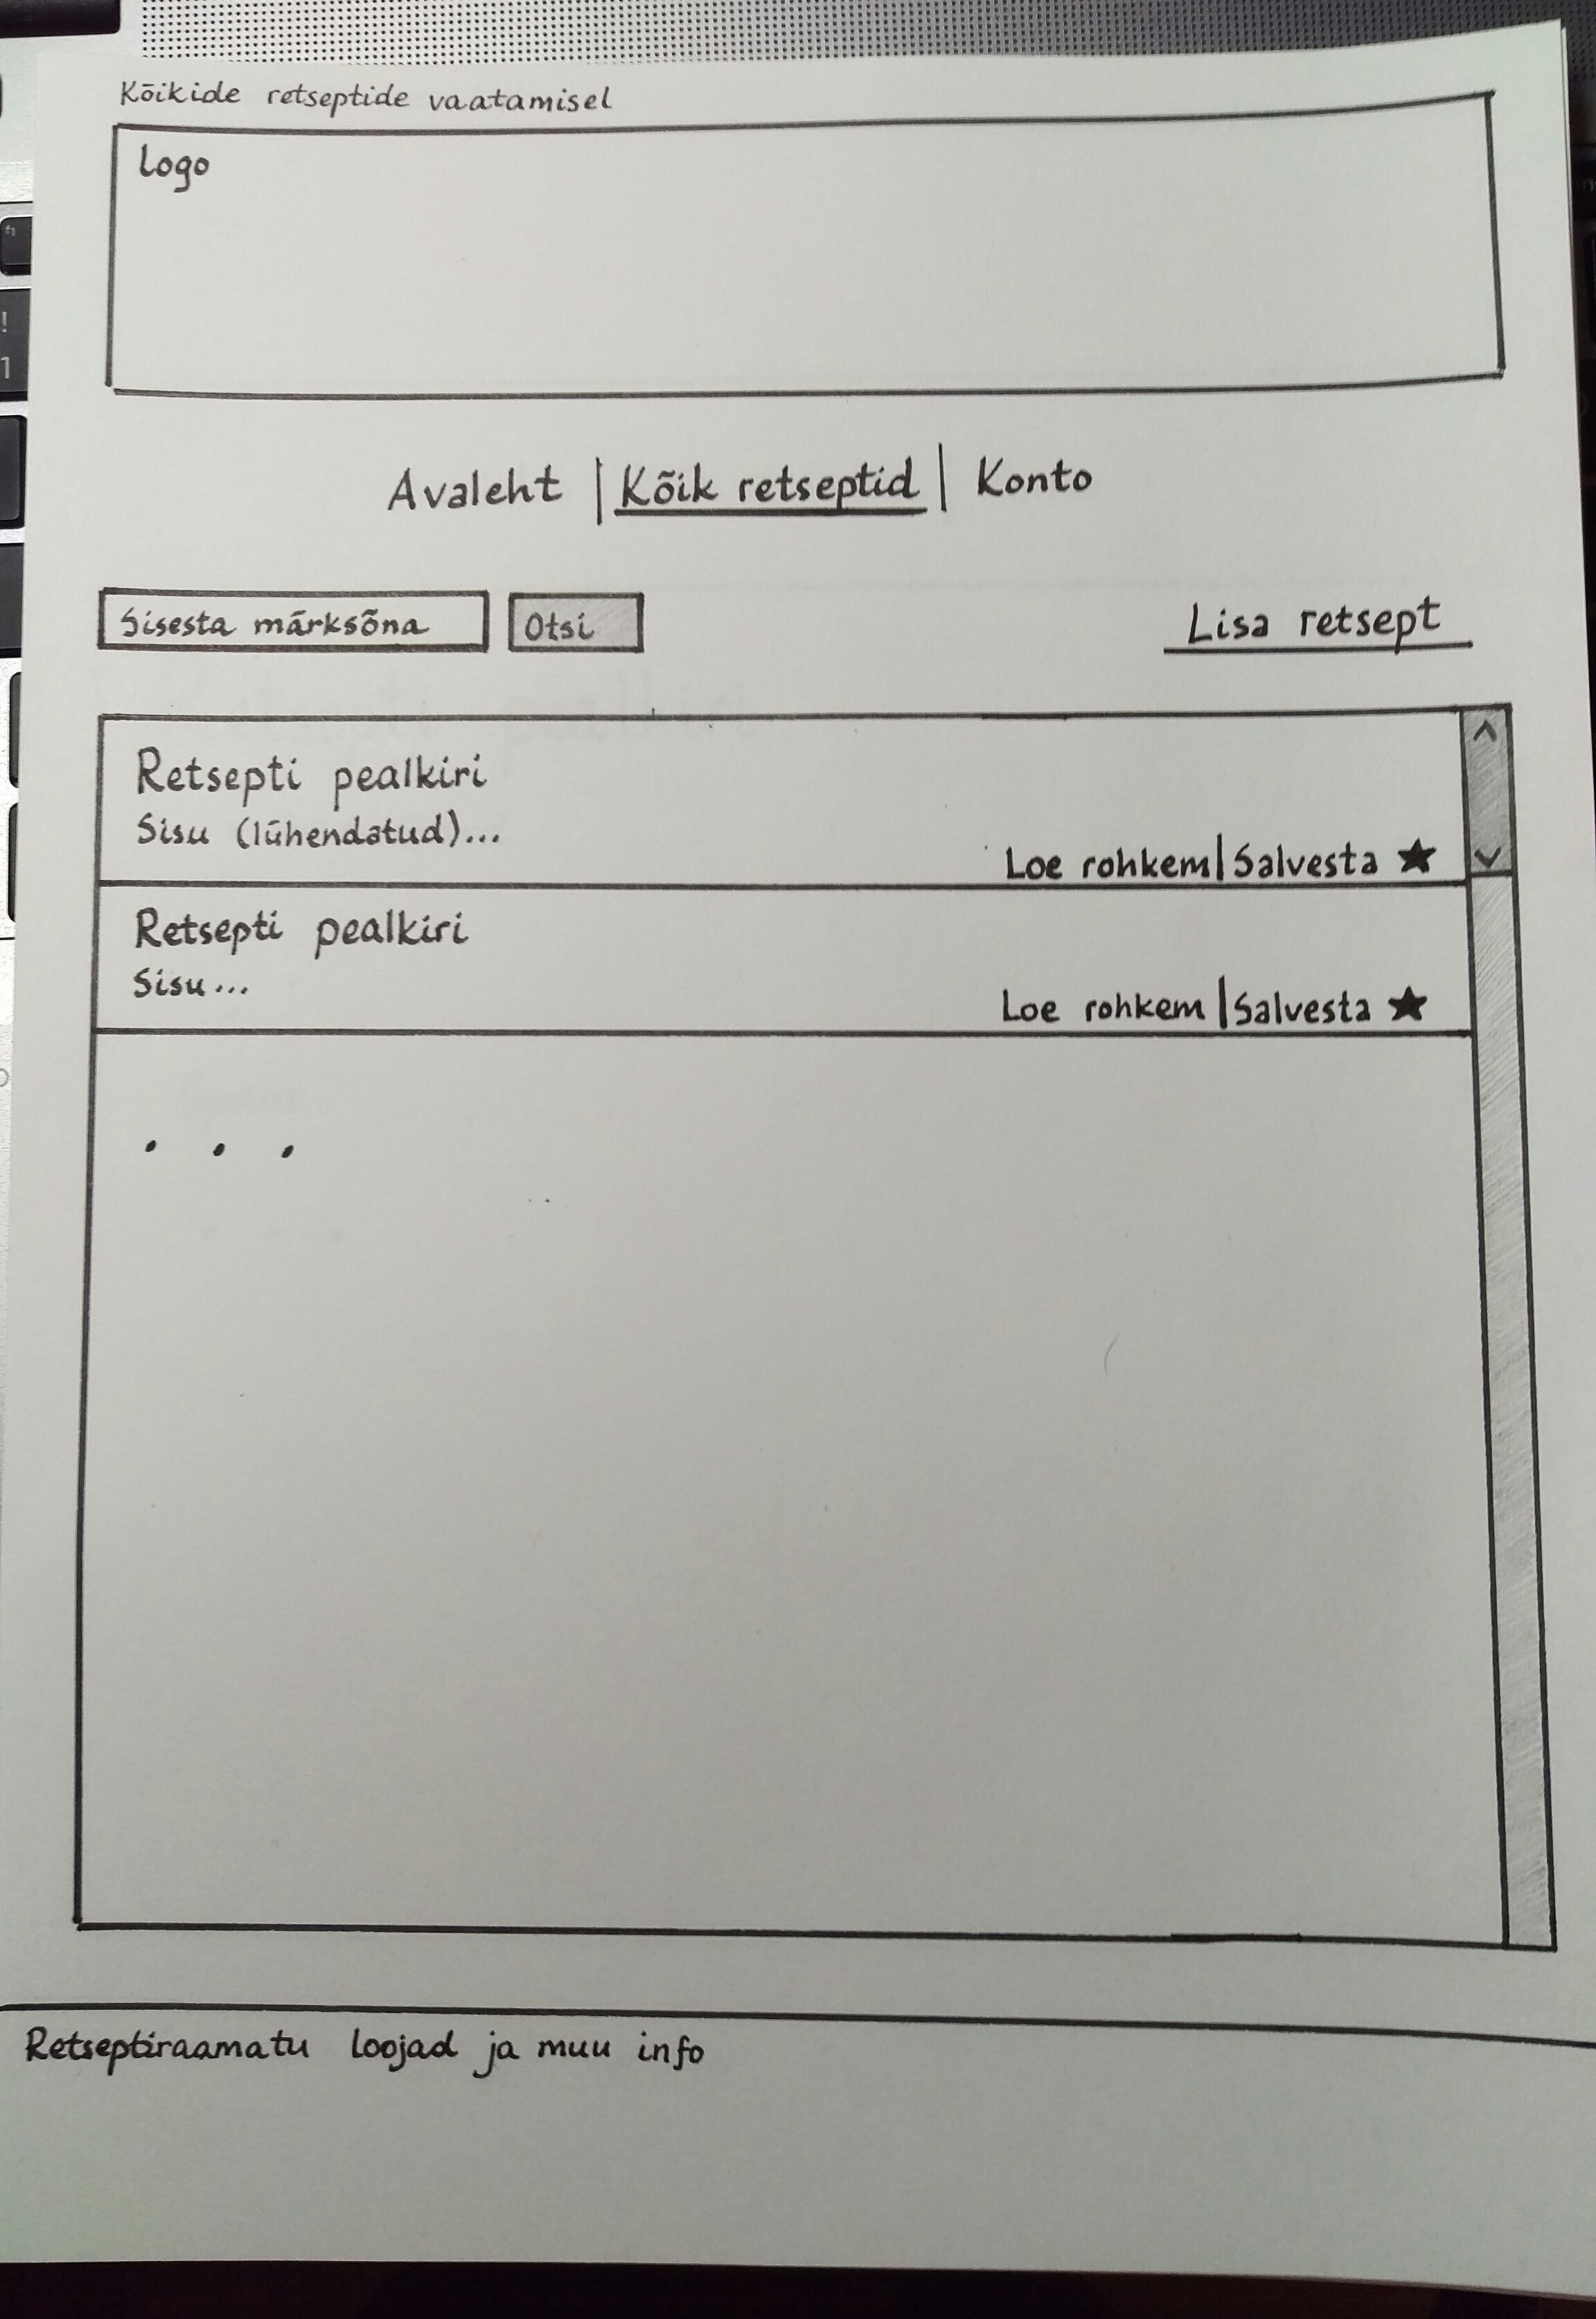 Kõikide retseptide vaatamisel
Logo
Avaleht | Kõik retseptid | Konto
Sisesta märksõna Otsi Lisa retsept
Retsepti pealkiri
Sisu (lühendatud)...
Loe rohkem | Salvesta ★
Retsepti pealkiri
Sisu...
Loe rohkem | Salvesta ★
. . .
Retseptiraamatu loojad ja muu info